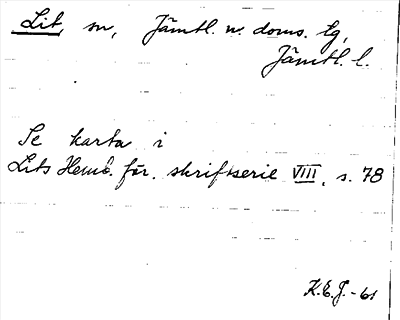 Lit, sn, Jämtl. n. doms. tg,
Jämtl. l.
Se karta i
Lits Hemb. för. skriftserie VIII, s. 78
K.E.J. -61